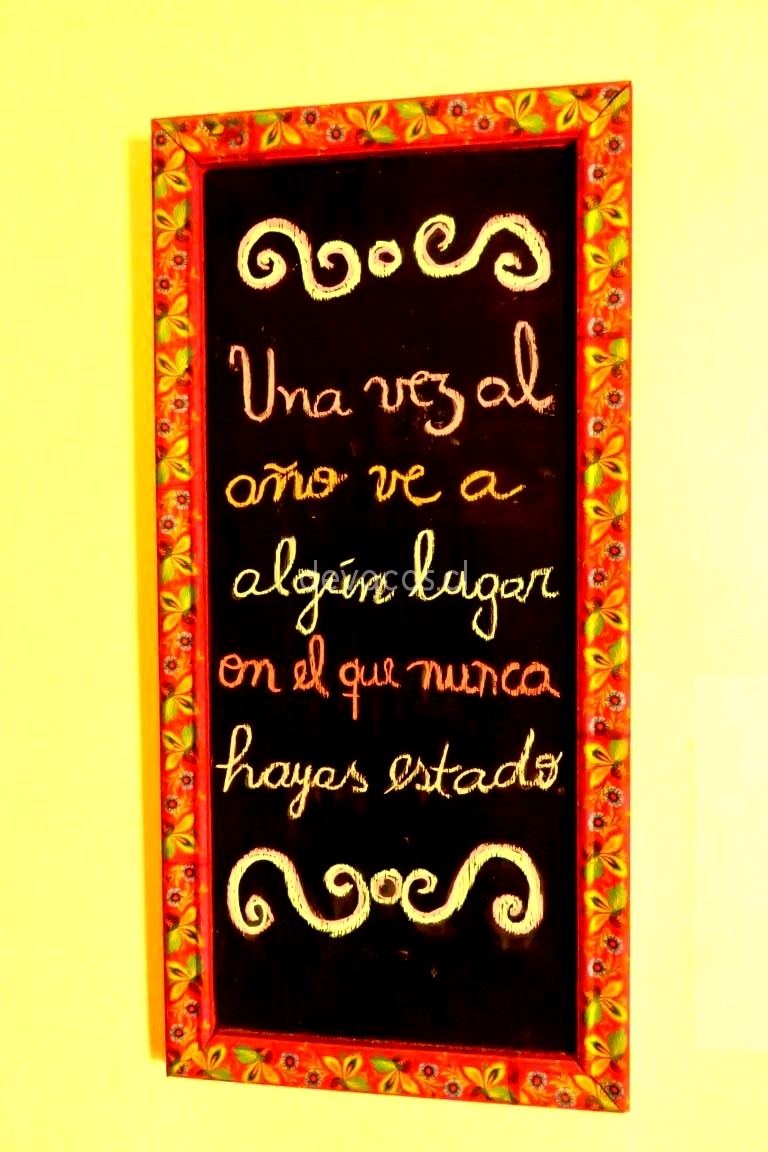 Una vez al
año ve a
algún lugar
en el que nunca
hayas estado
devocos.cl